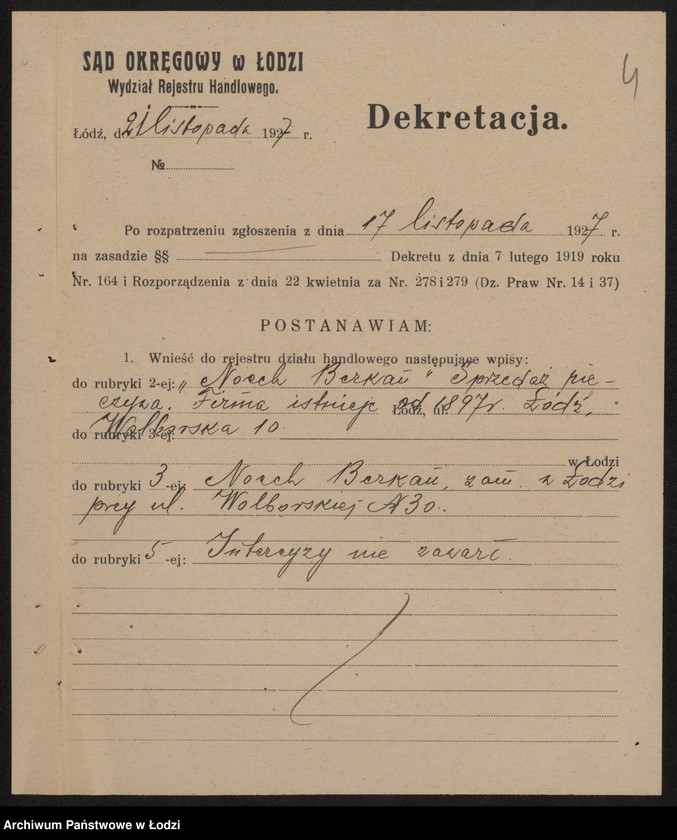 4
SĄD OKRĘGOWY w ŁODZI
Wydział Rejestru Handlowego.
Dekretacja.
Łódź, d. 21 listopada 1927 r.
№
Po rozpatrzeniu zgłoszenia z dnia 17 listopada 1927 r.
na zasadzie §§ Dekretu z dnia 7 lutego 1919 roku
Nr. 164 i Rozporządzenia z dnia 22 kwietnia za Nr. 278 i 279 (Dz. Praw Nr. 14 i 37)
POSTANAWIAM:
1. Wnieść do rejestru działu handlowego następujące wpisy:
do rubryki 2-ej: „Noech Berkań" Sprzedaż pie-
czywa. Firma istnieje od 1897 r. Łódź,
Łódź, ul.
do rubryki 3-ej: Wolborska 10
w Łodzi
do rubryki 3-ej: Noech Berkań, zam. w Łodzi
przy ul. Wolborskiej № 30.
do rubryki 5-ej: Intercyzy nie zawarł.
Archiwum Państwowe w Łodzi